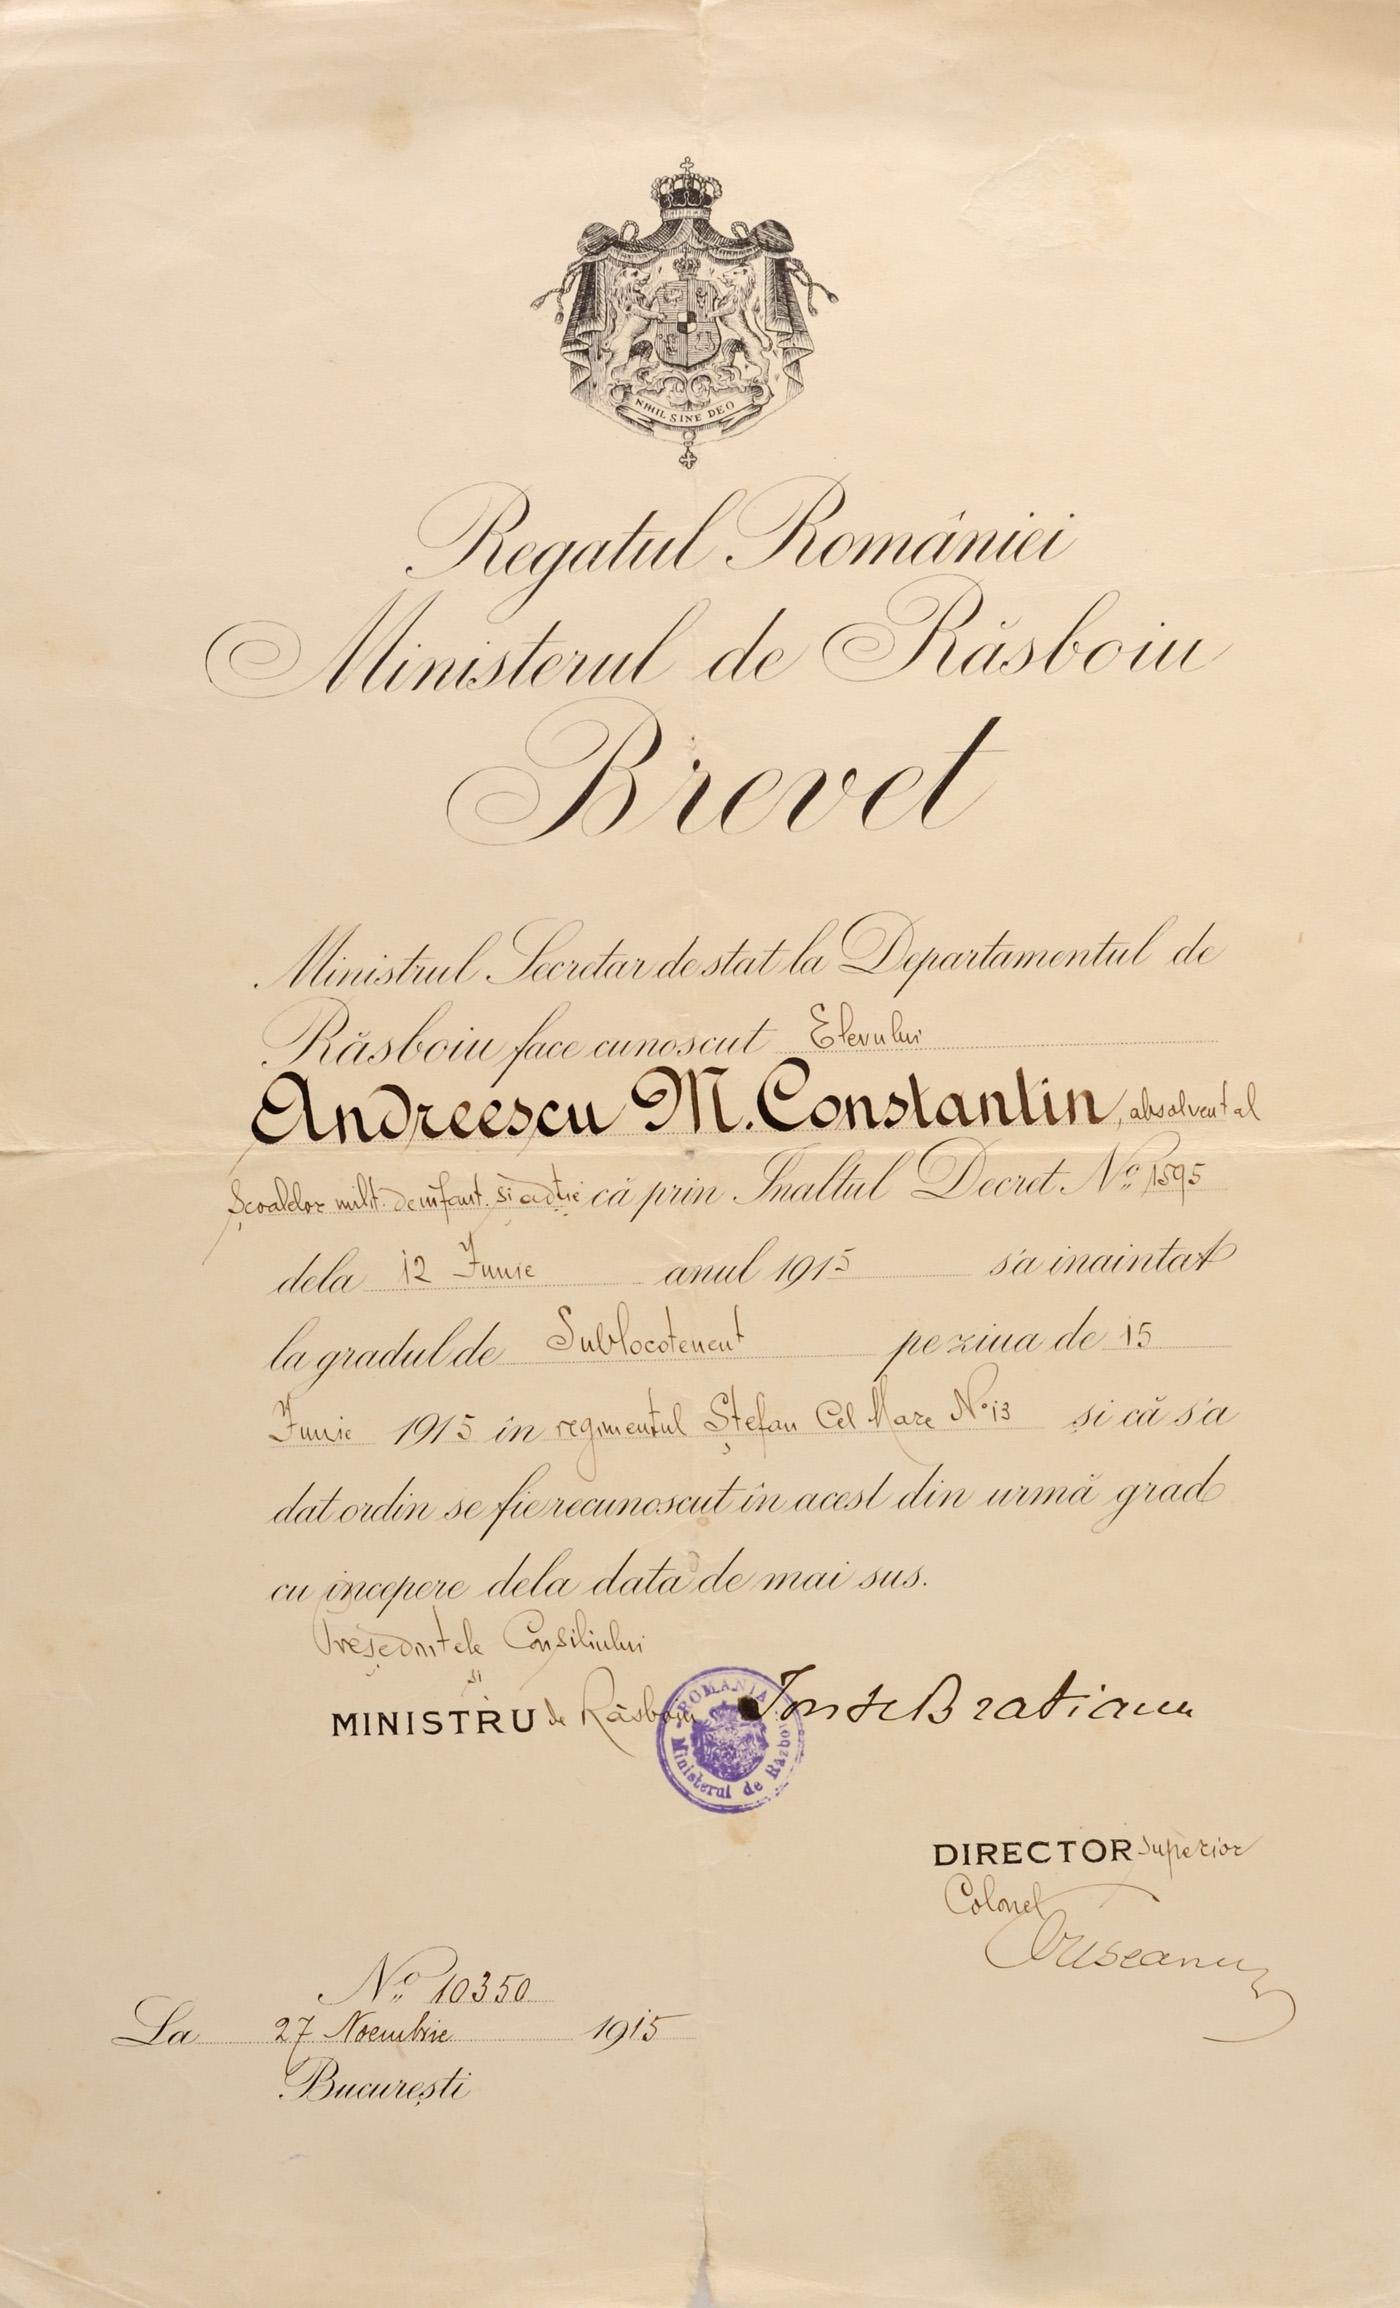 NIHIL SINE DEO
Regatul României
Ministerul de Răsboiu
Brevet
Ministrul Secretar de stat la Departamentul de
Răsboiu face cunoscut Elevului
Andreescu M. Constantin, absolvent al
Școalelor milit. de infant. și adție că prin Inaltul Decret No. 1595
dela 12 Iunie anul 1915 s'a inaintat
la gradul de Sublocotenent pe ziua de 15
Iunie 1915 în regimentul Ștefan Cel Mare No 13 și că s'a
dat ordin se fie recunoscut în acest din urmă grad
cu incepere dela data de mai sus.
Președintele Consiliului
și
MINISTRU de Răsboiu Ion I. C. Bratianu
ROMANIA
Ministerul de Războiu
DIRECTOR Superior
Colonel
No. 10350
La 27 Noembrie 1915
București